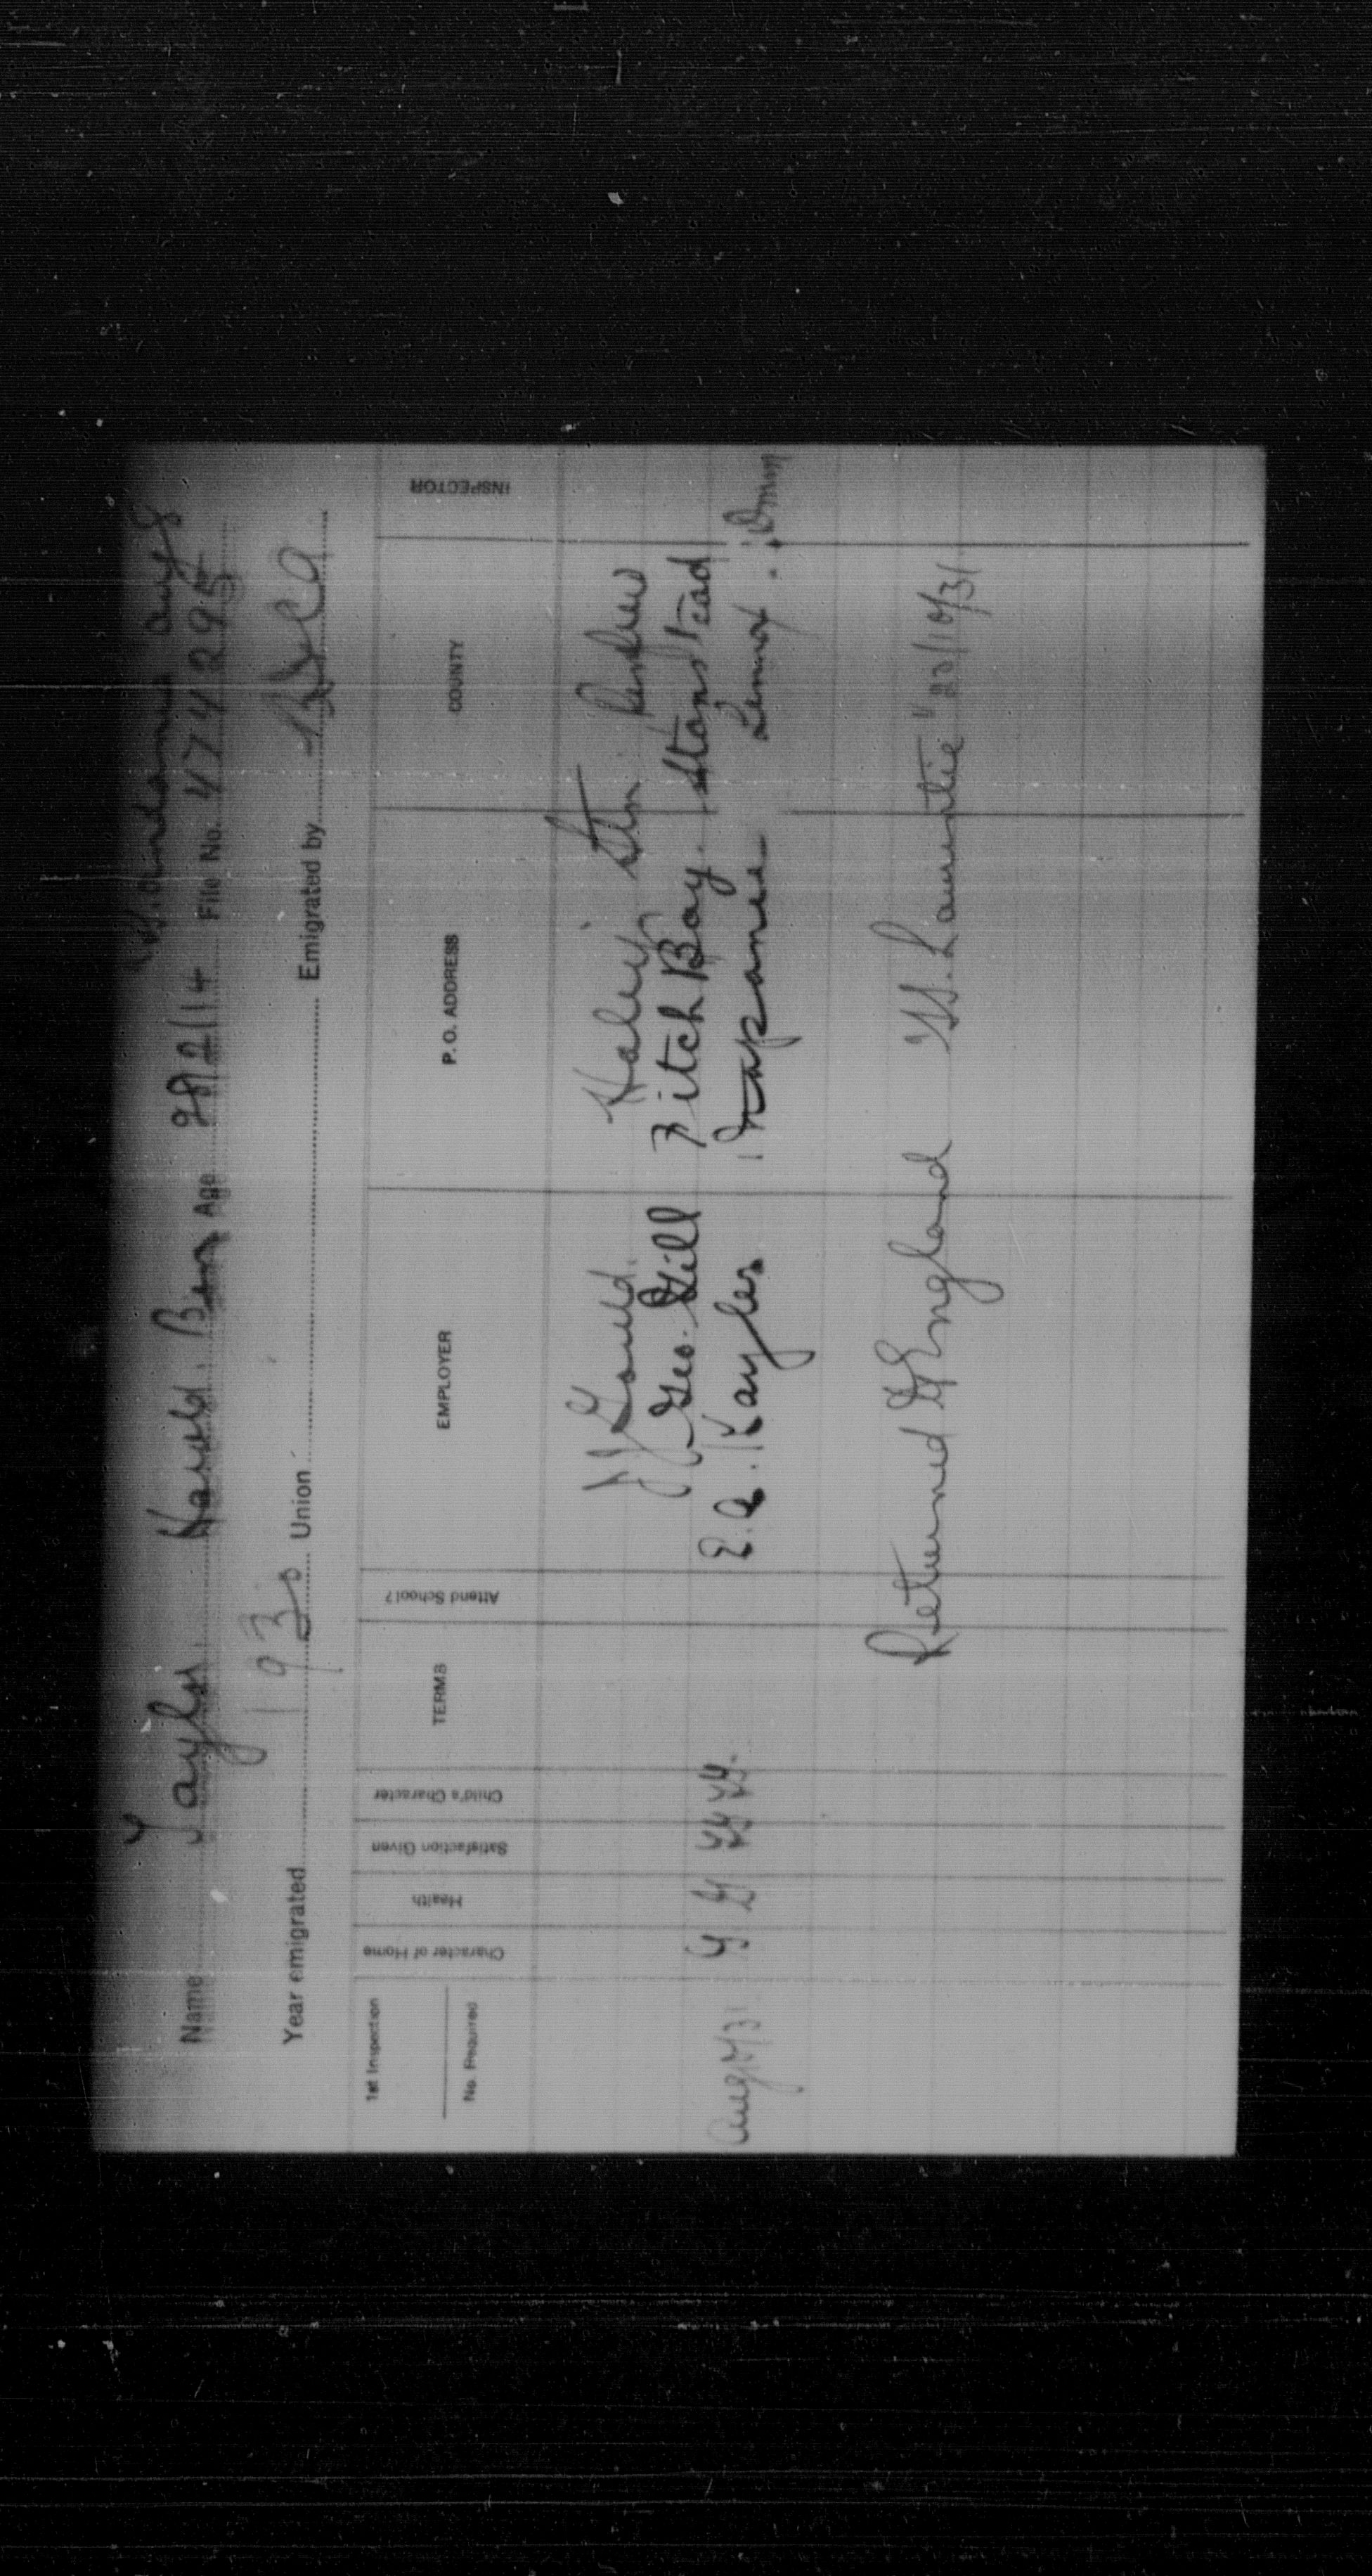 Name Taylor Harold Ben Age 28/2/14 File No. 474295
Year emigrated 1930 Union Emigrated by
1st Inspection
No. Required
Character of Home
Health
Satisfaction Given
Child's Character
TERMS
Attend School?
EMPLOYER
P. O. ADDRESS
COUNTY
INSPECTOR
Gould. Haley Stn. Renfrew
Geo. Gill Fitch Bay. Stanstead
Aug /31 G G G G. E.A. Kayler Napanee Lennox
Returned to England SS. Laurentic" 23/10/31